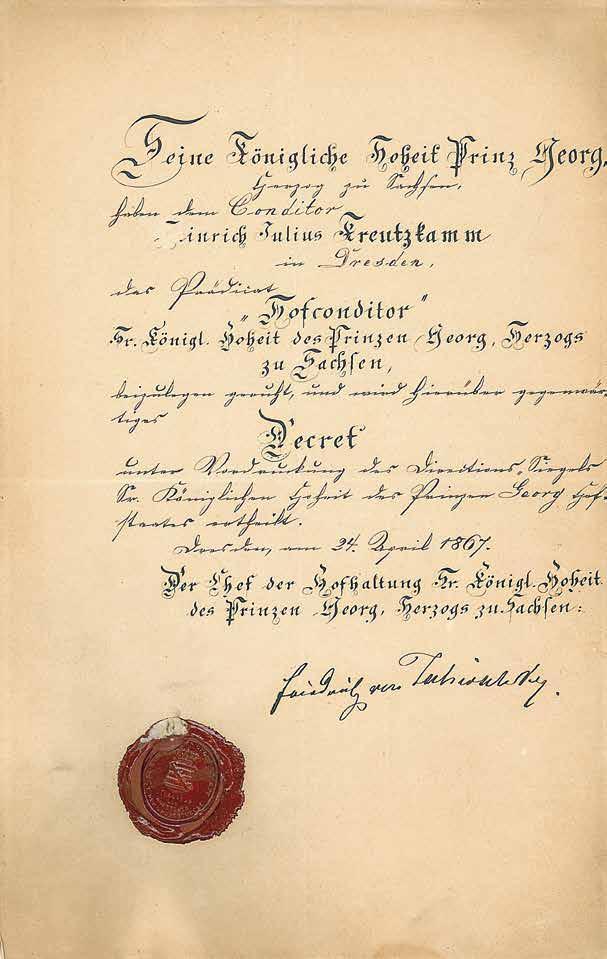 Seine Königliche Hoheit Prinz Georg,
Herzog zu Sachsen,
haben dem Conditor
Heinrich Julius Kreutzkamm
in Dresden,
das Prädicat
„Hofconditor"
Sr. Königl. Hoheit des Prinzen Georg, Herzogs
zu Sachsen,
beizulegen geruht, und wird hierüber gegenwär-
tiges
Decret
unter Vordruckung des Directions-Siegels
Sr. Königlichen Hoheit des Prinzen Georg Hof-
staates ertheilt.
Dresden, am 24. April 1867.
Der Chef der Hofhaltung Sr. Königl. Hoheit
des Prinzen Georg, Herzogs zu Sachsen:
von